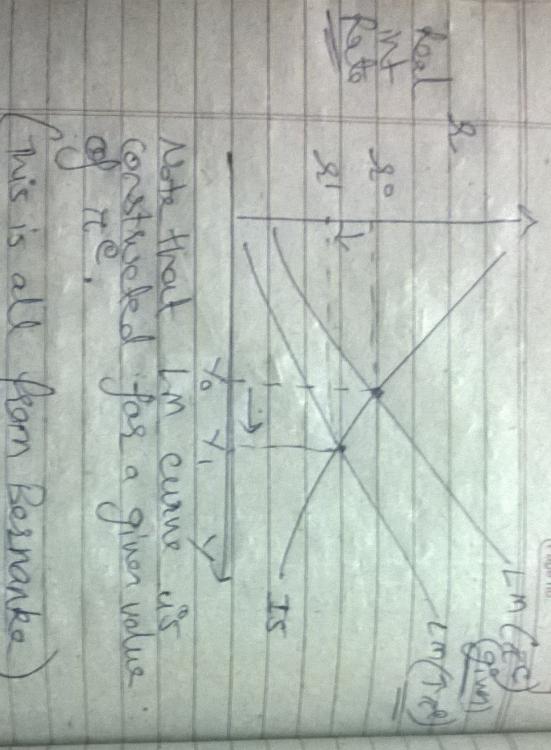 Real
int
Rate
r
r⁰
r¹
LM (πᵉ)
(given)
LM (↑πᵉ)
IS
Y₀ Y₁ Y
Note that LM curve is
constructed for a given value
of πᵉ.
(This is all from Bernanke)